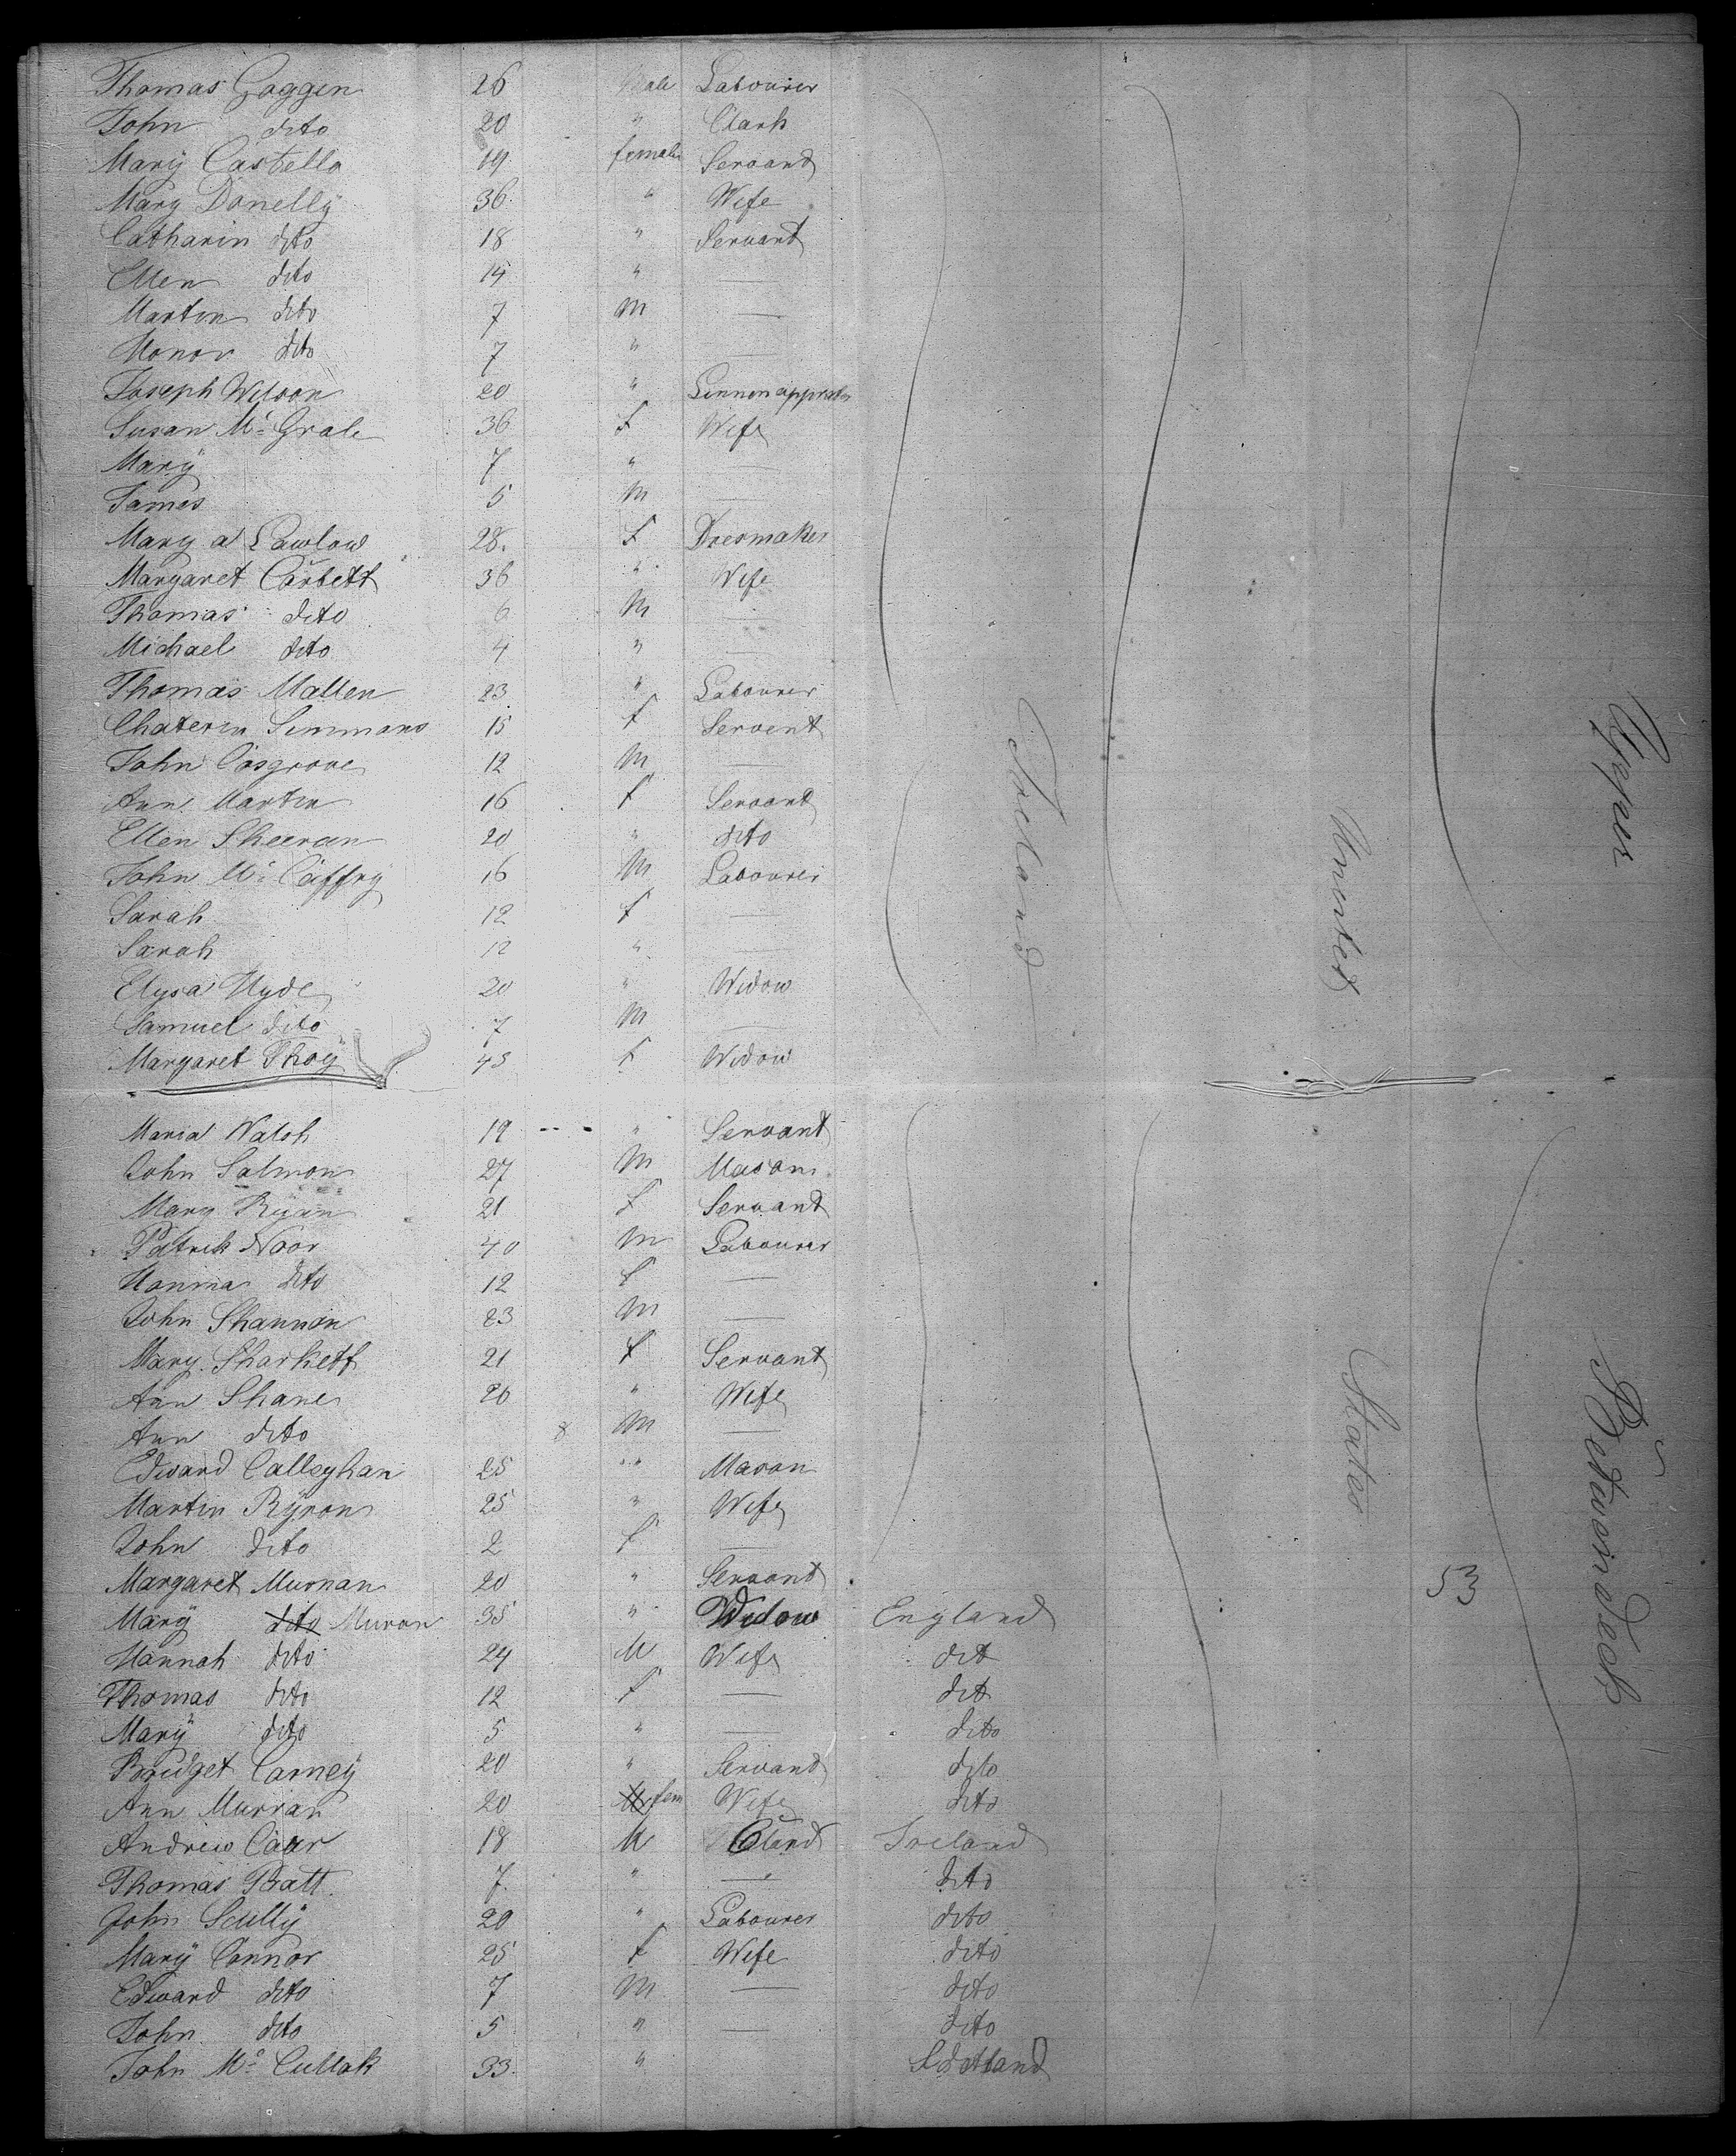 Thomas Goggen 26 Male Labourer
John dito 20 " Clark
Mary Castello 19 female Servand
Mary Donelly 36 " Wife
Catharin dito 18 " Servant
Ellen dito 14 " —
Martin dito 7 M —
Honor dito 7 "
Joseph Wilson 20 " Linnen
Susan Mc Grale 36 f Wife
Mary 7 " —
James 5 M —
Mary a Lawlow 28. f Dresmaker
Margaret Corbett 36 " Wife
Thomas dito 6 M —
Michael dito 4 " —
Thomas Mallen 23 " Labourer
Chaterin Simmans 15 f Servent
John Cosgrove 12 M —
Ann Martin 16 f Servand
Ellen Sheeran 20 " dito
John Mc Caffry 16 M Labourer
Sarah 12 f —
Sarah 12 " —
Elysa Hyde 20 " Widow
Samuel dito 7 M —
Margaret 45 f Widow
Ireland
Uneited
Upper
Maria Walsh 19 " Servant
John Salmon 27 M Mason
Mary Ryan 21 f Servand
Patrik Noor 40 M Labourer
Honma dito 12 f —
John Shannon 23 M —
Mary Sharkett 21 f Servant
Ann Shane 26 " Wife
Ann dito 8 M —
Edward Calleghan 25 " Mason
Martin Ryron 25 " Wife
John dito 2 f —
Margaret Murnan 20 " Servand
Mary dito Muron 35 " Widow England
Hannah dito 24 M Wife dit
Thomas dito 12 f — dit
Mary dito 5 " — dito
Bridget Carney 20 " Servand dito
Ann Murran 20 M fem Wife dito
Andrew Caar 18 M Ireland
Thomas Batt 7 " — dito
John Scully 20 " Labourer dito
Mary Connor 25 f Wife dito
Edward dito 7 M — dito
John dito 5 " — dito
John Mc Cullok 33 "
States
53
Betwin Deck